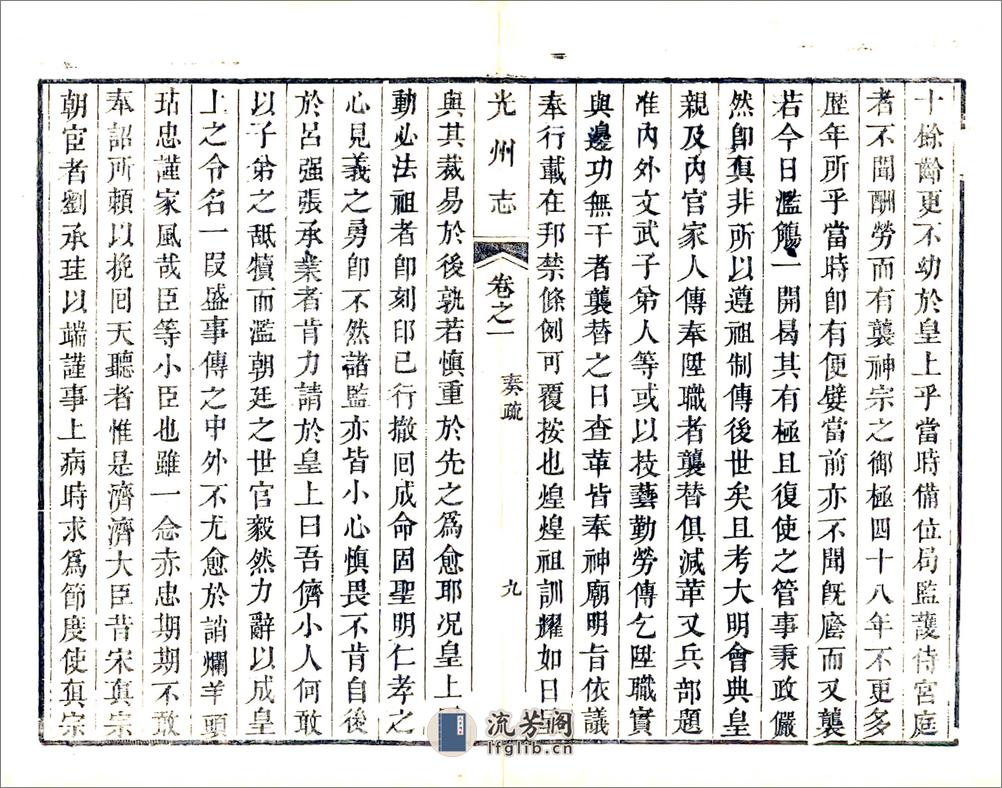 十餘齡更不幼於皇上乎當時備位局監護侍宮庭
者不聞酬勞而有襲神宗之御極四十八年不更多
歷年所乎當時卽有便嬖當前亦不聞旣廕而又襲
若今日濫觴一開曷其有極且復使之管事秉政儼
然卽眞非所以遵祖制傳後世矣且考大明會典皇
親及內官家人傳奉陞職者襲替俱減革又兵部題
准內外文武子弟人等或以技藝勤勞傳乞陞職實
與邊功無干者襲替之日查革皆奉神廟明旨依議
奉行載在邦禁條例可覆按也煌煌祖訓耀如日
光州志
卷之一
奏疏
九
與其裁易於後孰若慎重於先之爲愈耶況皇上
動必法祖者卽刻印已行撤回成命固聖明仁孝之
心見義之勇卽不然諸監亦皆小心慎畏不肯自後
於呂强張承業者肯力請於皇上曰吾儕小人何敢
以子弟之舐犢而濫朝廷之世官毅然力辭以成皇
上之令名一段盛事傳之中外不尤愈於誚爛羊頭
玷忠謹家風哉臣等小臣也雖一念赤忠期期不敢
奉詔所賴以挽回天聽者惟是濟濟大臣昔宋眞宗
朝宦者劉承珪以端謹事上病時求爲節度使眞宗
流芳閣
lfglib.cn